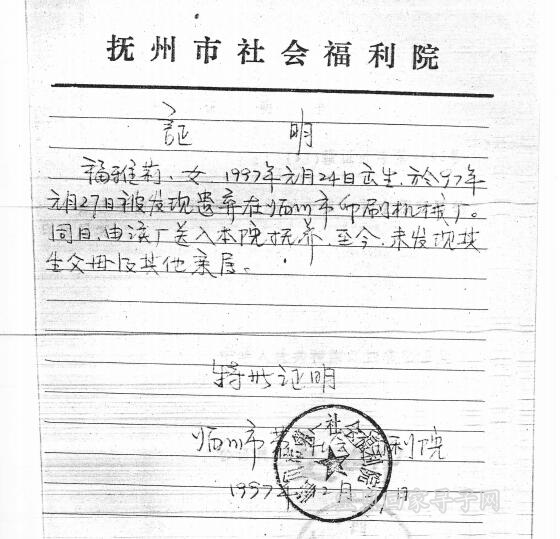 抚州市社会福利院
証 明
福雅莉、女、1997年元月24日出生、于今97年
元月27日被发现遗弃在临川市印刷机械厂。
同日、由该厂送入本院抚养、至今、未发现其
生父母及其他亲属。
特此证明
临川市 社会福利院
1997年12月 日
宝贝回家寻子网